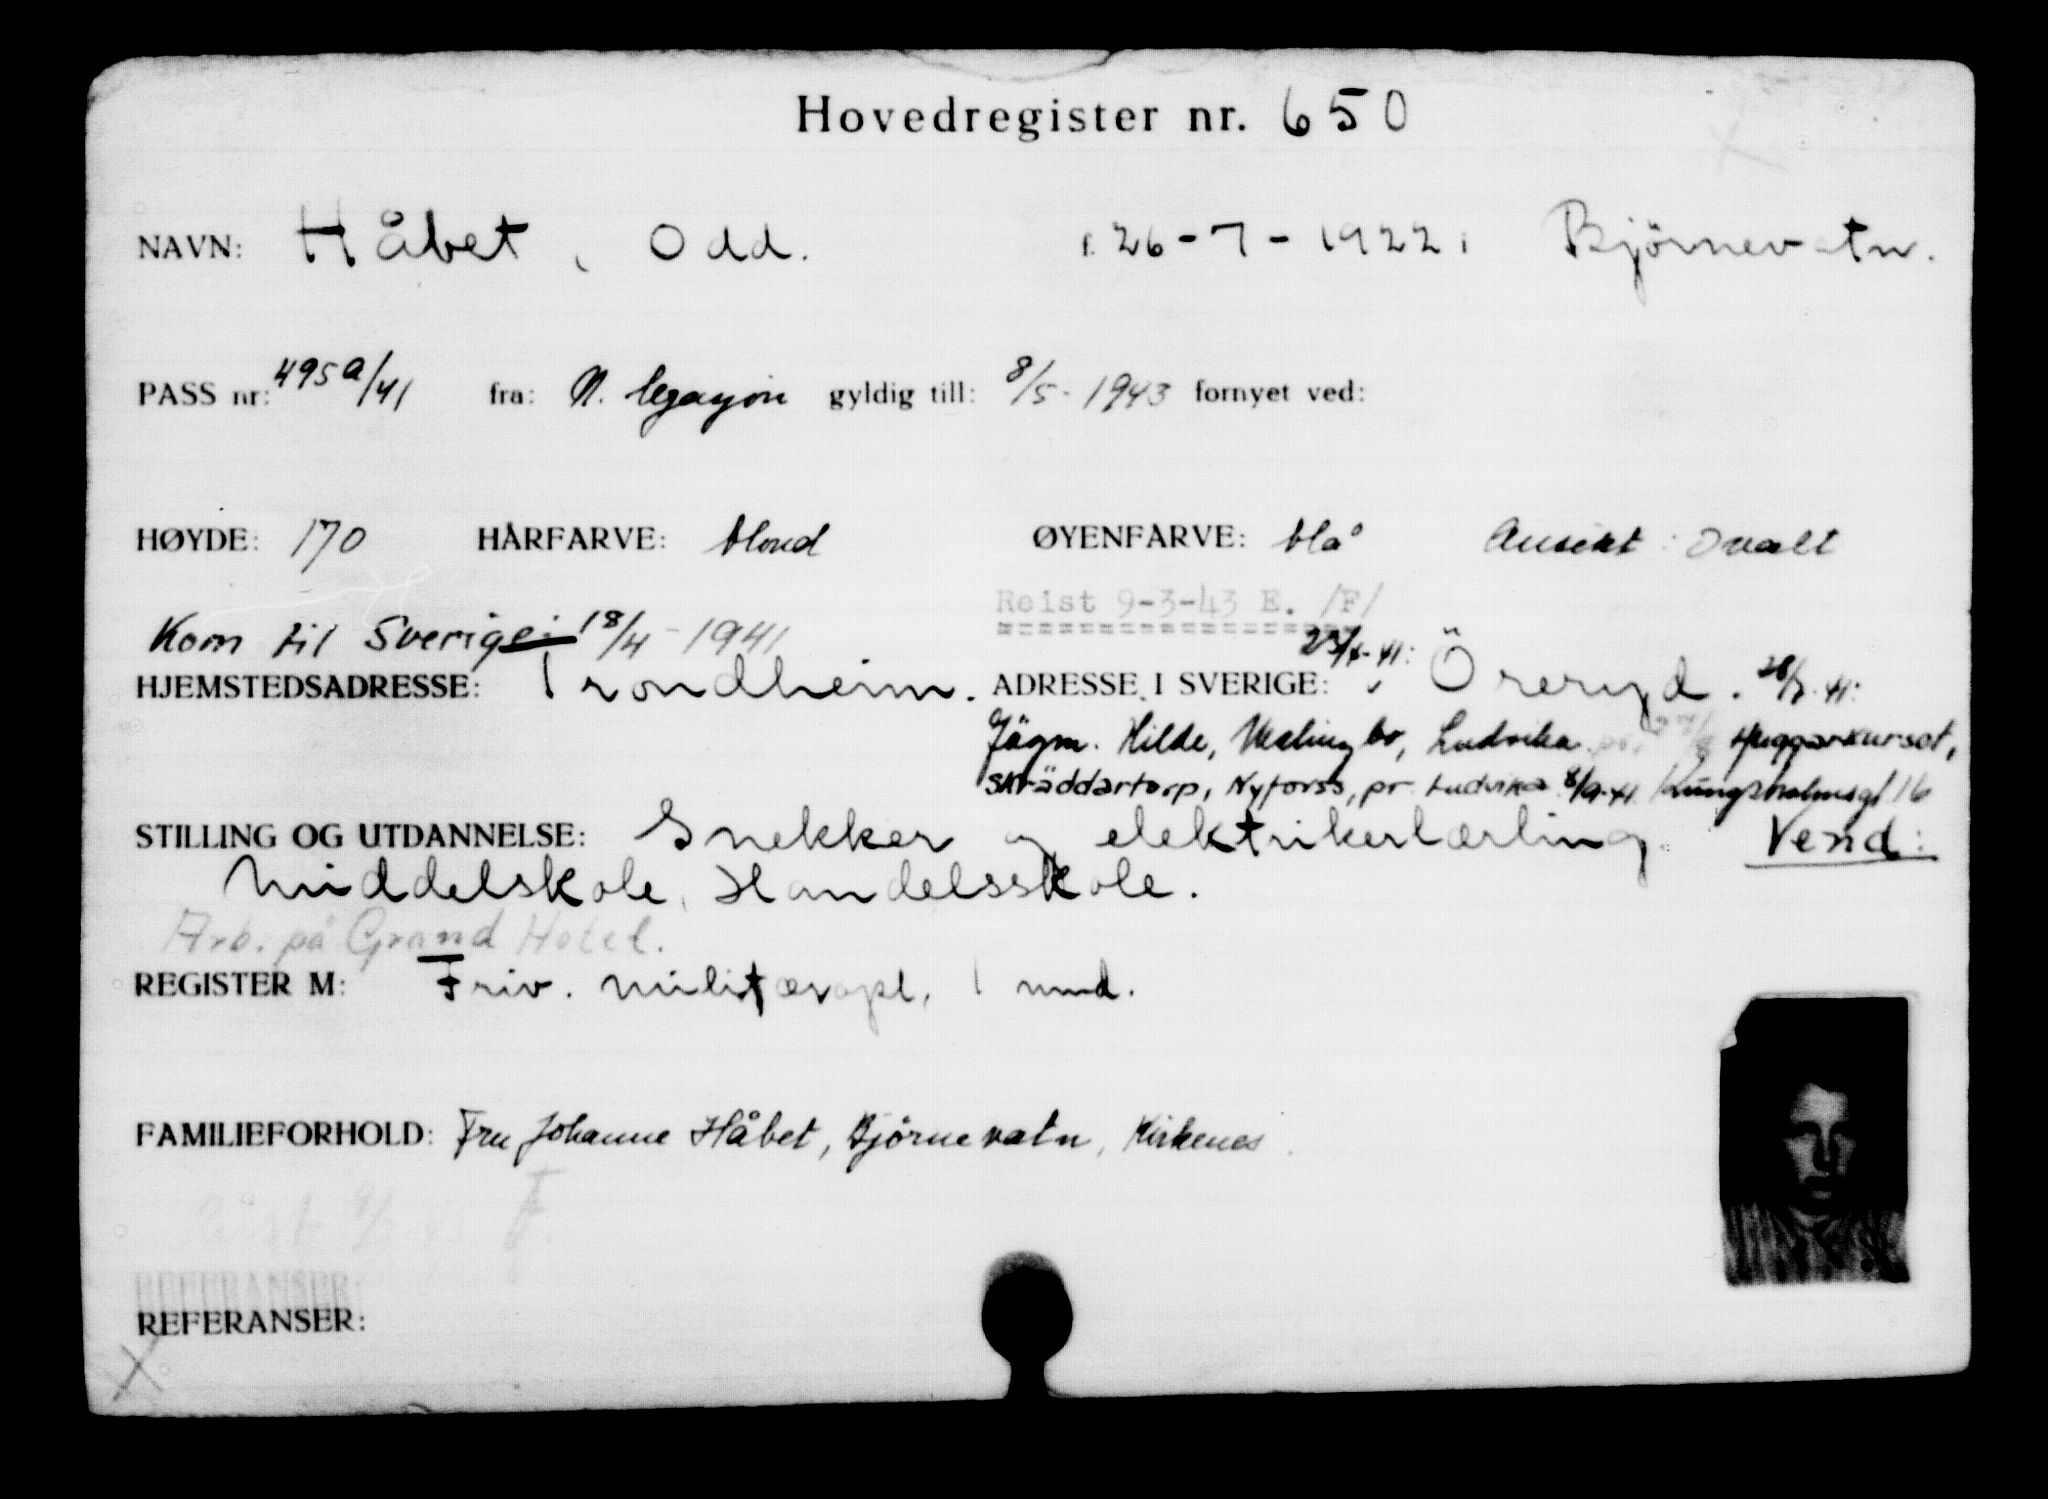 Hovedregister nr. 650
NAVN: Håbet, Odd. f. 26-7-1922 i Bjørnevatn.
PASS nr: 495a/41 fra: N. legasjon gyldig till: 8/5-1943 fornyet ved:
HØYDE: 170 HÅRFARVE: blond ØYENFARVE: blå Ansikt: Ovalt
Reist 9-3-43 E. /F/
Kom til Sverige: 18/4-1941
HJEMSTEDSADRESSE: Trondheim. ADRESSE I SVERIGE: 23/4-41: Öreryd. 28/7-41:
Jägm. Hilde, Ludvika Huggarkurset,
Skräddartorp, Nyforss, pr Ludvika 8/9-41 Kungsholmsgt 16
STILLING OG UTDANNELSE: Snekker og elektrikerlærling. Vend:
Middelskole, Handelsskole.
Arb. på Grand Hotel.
REGISTER M: Friv. militæropl, 1 mnd.
FAMILIEFORHOLD: Fru Johanne Håbet, Bjørnevatn, Kirkenes.
Reist 9/3 43 F
REFERANSER: